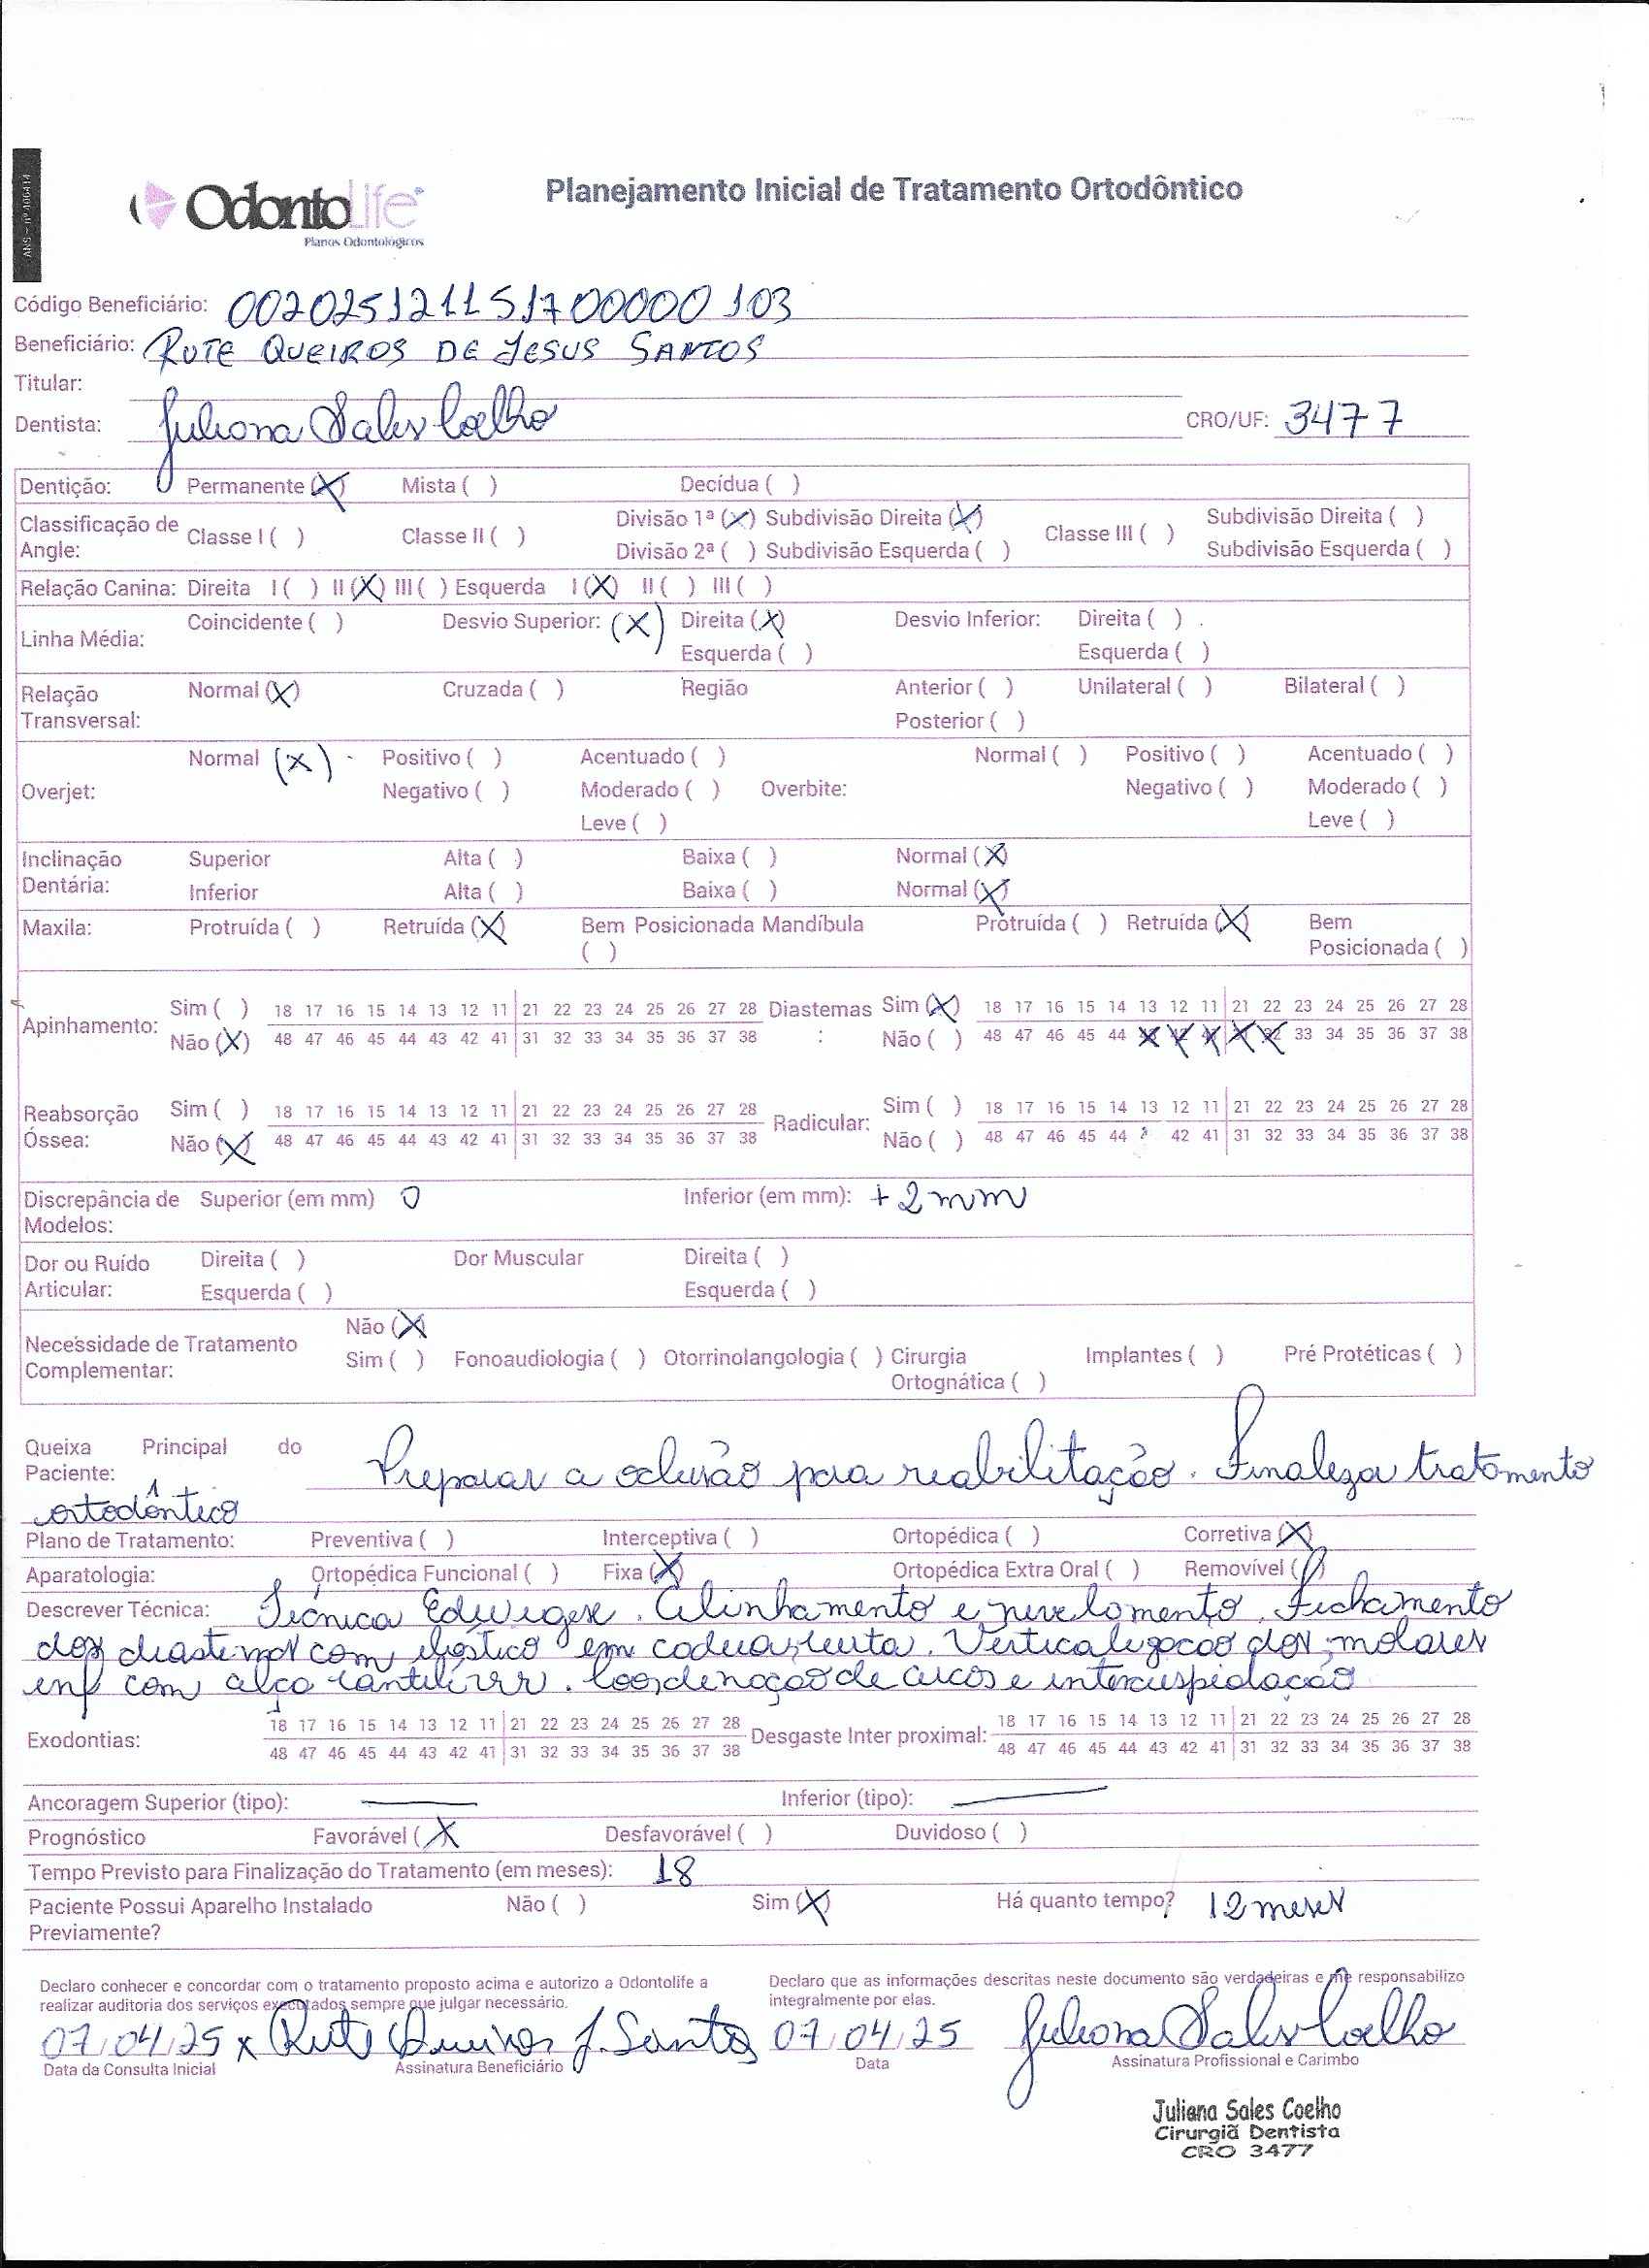 ANS - nº 406414
OdontoLife®
Planos Odontológicos
Planejamento Inicial de Tratamento Ortodôntico
Código Beneficiário: 002025121151700000103
Beneficiário: RUTE QUEIROS DE JESUS SANTOS
Titular:
Dentista: Juliana Sales Coelho CRO/UF: 3477
Dentição: Permanente (X) Mista ( ) Decídua ( )
Classificação de Angle: Classe I ( ) Classe II ( ) Divisão 1ª (X) Subdivisão Direita (X) Classe III ( ) Subdivisão Direita ( )
Divisão 2ª ( ) Subdivisão Esquerda ( ) Subdivisão Esquerda ( )
Relação Canina: Direita I ( ) II (X) III ( ) Esquerda I (X) II ( ) III ( )
Linha Média: Coincidente ( ) Desvio Superior: (X) Direita (X) Desvio Inferior: Direita ( )
Esquerda ( ) Esquerda ( )
Relação Transversal: Normal (X) Cruzada ( ) Região Anterior ( ) Unilateral ( ) Bilateral ( )
Posterior ( )
Normal (X) Positivo ( ) Acentuado ( ) Normal ( ) Positivo ( ) Acentuado ( )
Overjet: Negativo ( ) Moderado ( ) Overbite: Negativo ( ) Moderado ( )
Leve ( ) Leve ( )
Inclinação Dentária: Superior Alta ( ) Baixa ( ) Normal (X)
Inferior Alta ( ) Baixa ( ) Normal (X)
Maxila: Protruída ( ) Retruída (X) Bem Posicionada ( ) Mandíbula Protruída ( ) Retruída (X) Bem Posicionada ( )
Apinhamento: Sim ( ) 18 17 16 15 14 13 12 11 21 22 23 24 25 26 27 28 Diastemas: Sim (X) 18 17 16 15 14 13 12 11 21 22 23 24 25 26 27 28
Não (X) 48 47 46 45 44 43 42 41 31 32 33 34 35 36 37 38 Não ( ) 48 47 46 45 44 X X X X X 33 34 35 36 37 38
Reabsorção Óssea: Sim ( ) 18 17 16 15 14 13 12 11 21 22 23 24 25 26 27 28 Radicular: Sim ( ) 18 17 16 15 14 13 12 11 21 22 23 24 25 26 27 28
Não (X) 48 47 46 45 44 43 42 41 31 32 33 34 35 36 37 38 Não ( ) 48 47 46 45 44 42 41 31 32 33 34 35 36 37 38
Discrepância de Modelos: Superior (em mm) 0 Inferior (em mm): +2mm
Dor ou Ruído Articular: Direita ( ) Dor Muscular Direita ( )
Esquerda ( ) Esquerda ( )
Necessidade de Tratamento Complementar: Não (X)
Sim ( ) Fonoaudiologia ( ) Otorrinolangologia ( ) Cirurgia Ortognática ( ) Implantes ( ) Pré Protéticas ( )
Queixa Principal do Paciente: Preparar a oclusão para reabilitação. Finalizar tratamento
ortodôntico
Plano de Tratamento: Preventiva ( ) Interceptiva ( ) Ortopédica ( ) Corretiva (X)
Aparatologia: Ortopédica Funcional ( ) Fixa (X) Ortopédica Extra Oral ( ) Removível ( )
Descrever Técnica: Técnica Edwigse. Alinhamento e nivelamento. Fechamento
dos diastemas com elástico em cadeia, lenta. Verticalização dos molares
inf com alça cantiléver. Coordenação de arcos e intercuspidação
Exodontias: 18 17 16 15 14 13 12 11 21 22 23 24 25 26 27 28 Desgaste Inter proximal: 18 17 16 15 14 13 12 11 21 22 23 24 25 26 27 28
48 47 46 45 44 43 42 41 31 32 33 34 35 36 37 38 48 47 46 45 44 43 42 41 31 32 33 34 35 36 37 38
Ancoragem Superior (tipo): — Inferior (tipo): —
Prognóstico Favorável (X) Desfavorável ( ) Duvidoso ( )
Tempo Previsto para Finalização do Tratamento (em meses): 18
Paciente Possui Aparelho Instalado Previamente? Não ( ) Sim (X) Há quanto tempo? 12 meses
Declaro conhecer e concordar com o tratamento proposto acima e autorizo a Odontolife a
realizar auditoria dos serviços executados sempre que julgar necessário.
Declaro que as informações descritas neste documento são verdadeiras e me responsabilizo
integralmente por elas.
07/04/25 x Rute Queiros J. Santos 07/04/25 Juliana Sales Coelho
Data da Consulta Inicial Assinatura Beneficiário Data Assinatura Profissional e Carimbo
Juliana Sales Coelho
Cirurgiã Dentista
CRO 3477